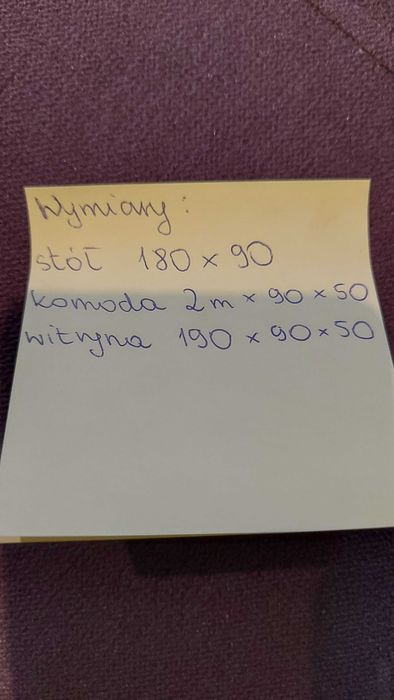 Wymiary:
stół 180 × 90
komoda 2m × 90 × 50
witryna 190 × 90 × 50